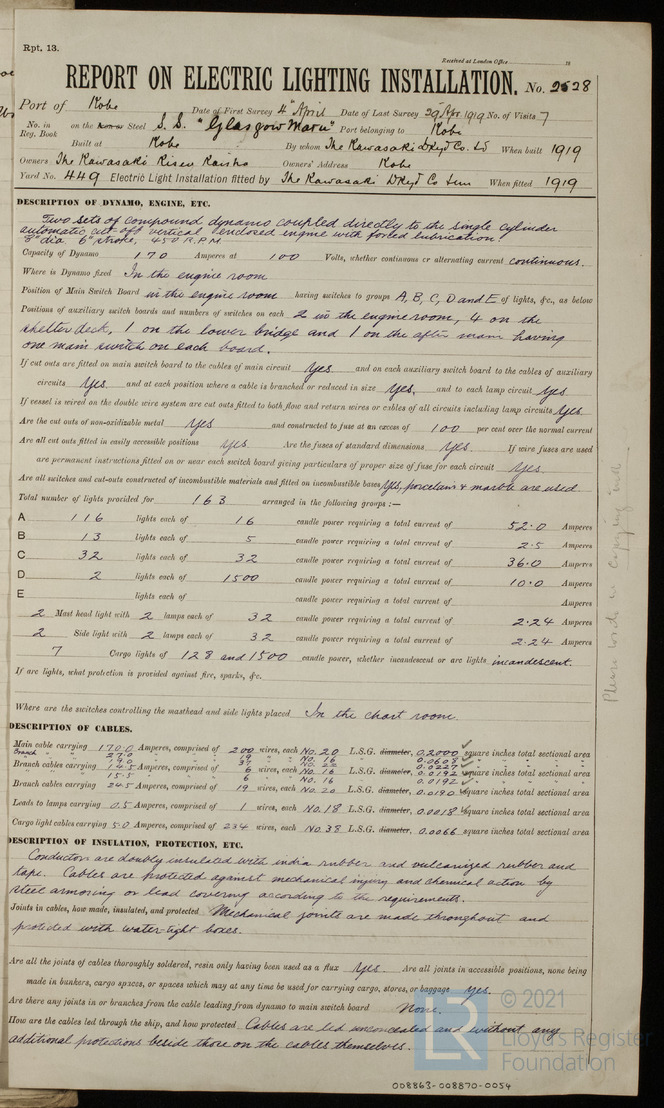 Rpt. 13.
Received at London Office 19
REPORT ON ELECTRIC LIGHTING INSTALLATION. No. 2528
Port of Kobe Date of First Survey 4th April Date of Last Survey 29th Apr 1919 No. of Visits 7
No. in Reg. Book on the Iron or Steel S.S. "Glasgow Maru" Port belonging to Kobe
Built at Kobe By whom The Kawasaki Dkyd Co. Ld When built 1919
Owners The Kawasaki Kisen Kaisha Owners' Address Kobe
Yard No. 449 Electric Light Installation fitted by The Kawasaki Dkyd Co Lim When fitted 1919
DESCRIPTION OF DYNAMO, ENGINE, ETC.
Two sets of compound dynamo coupled directly to the single cylinder
automatic cut-off vertical enclosed engine with forced lubrication.
8" dia 6" stroke, 450 R.P.M.
Capacity of Dynamo 170 Amperes at 100 Volts, whether continuous or alternating current continuous.
Where is Dynamo fixed In the engine room
Position of Main Switch Board in the engine room having switches to groups A, B, C, D and E of lights, &c., as below
Positions of auxiliary switch boards and numbers of switches on each 2 in the engine room, 4 on the
shelter deck, 1 on the lower bridge and 1 on the after main having
one main switch on each board.
If cut outs are fitted on main switch board to the cables of main circuit Yes and on each auxiliary switch board to the cables of auxiliary
circuits Yes and at each position where a cable is branched or reduced in size Yes, and to each lamp circuit Yes
If vessel is wired on the double wire system are cut outs fitted to both flow and return wires or cables of all circuits including lamp circuits Yes.
Are the cut outs of non-oxidizable metal Yes and constructed to fuse at an excess of 100 per cent over the normal current
Are all cut outs fitted in easily accessible positions Yes. Are the fuses of standard dimensions Yes. If wire fuses are used
are permanent instructions fitted on or near each switch board giving particulars of proper size of fuse for each circuit Yes.
Are all switches and cut-outs constructed of incombustible materials and fitted on incombustible bases Yes, porcelain & marble are used.
Total number of lights provided for 163 arranged in the following groups :—
A 116 lights each of 16 candle power requiring a total current of 52.0 Amperes
B 13 lights each of 5 candle power requiring a total current of 2.5 Amperes
C 32 lights each of 32 candle power requiring a total current of 36.0 Amperes
D 2 lights each of 1500 candle power requiring a total current of 10.0 Amperes
E lights each of candle power requiring a total current of Amperes
2 Mast head light with 2 lamps each of 32 candle power requiring a total current of 2.24 Amperes
2 Side light with 2 lamps each of 32 candle power requiring a total current of 2.24 Amperes
7 Cargo lights of 128 and 1500 candle power, whether incandescent or arc lights incandescent.
If arc lights, what protection is provided against fire, sparks, &c.
Where are the switches controlling the masthead and side lights placed In the chart room.
DESCRIPTION OF CABLES.
Main cable carrying 170.0 Amperes, comprised of 200 wires, each No. 20 L.S.G. diameter, 0.2000 square inches total sectional area
Branch 27.0 19 No. 16 0.0608
9.0 37 No. 22 0.0227
Branch cables carrying 14.5 Amperes, comprised of 6 wires, each No. 16 L.S.G. diameter, 0.0192 square inches total sectional area
15.5 6 No. 16 0.0192
Branch cables carrying 24.5 Amperes, comprised of 19 wires, each No. 20 L.S.G. diameter, 0.0190 square inches total sectional area
Leads to lamps carrying 0.5 Amperes, comprised of 1 wires, each No. 18 L.S.G. diameter, 0.0018 square inches total sectional area
Cargo light cables carrying 5.0 Amperes, comprised of 234 wires, each No. 38 L.S.G. diameter, 0.0066 square inches total sectional area
DESCRIPTION OF INSULATION, PROTECTION, ETC.
Conductors are doubly insulated with india rubber and vulcanized rubber and
tape. Cables are protected against mechanical injury and chemical action by
steel armoring or lead covering according to the requirements.
Joints in cables, how made, insulated, and protected Mechanical joints are made throughout and
protected with water-tight boxes.
Are all the joints of cables thoroughly soldered, resin only having been used as a flux Yes. Are all joints in accessible positions, none being
made in bunkers, cargo spaces, or spaces which may at any time be used for carrying cargo, stores, or baggage yes.
Are there any joints in or branches from the cable leading from dynamo to main switch board None.
How are the cables led through the ship, and how protected Cables are led unconcealed and without any
additional protections beside those on the cables themselves.
Please write in copying ink
LR © 2021
Lloyd's Register
Foundation
008863-008870-0054